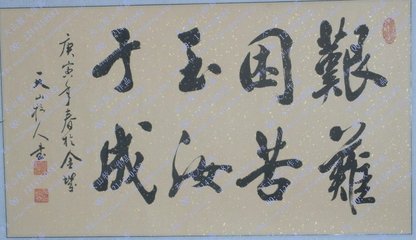 艱難
困苦
玉汝
于成
庚寅年春於金城
天山牧人書